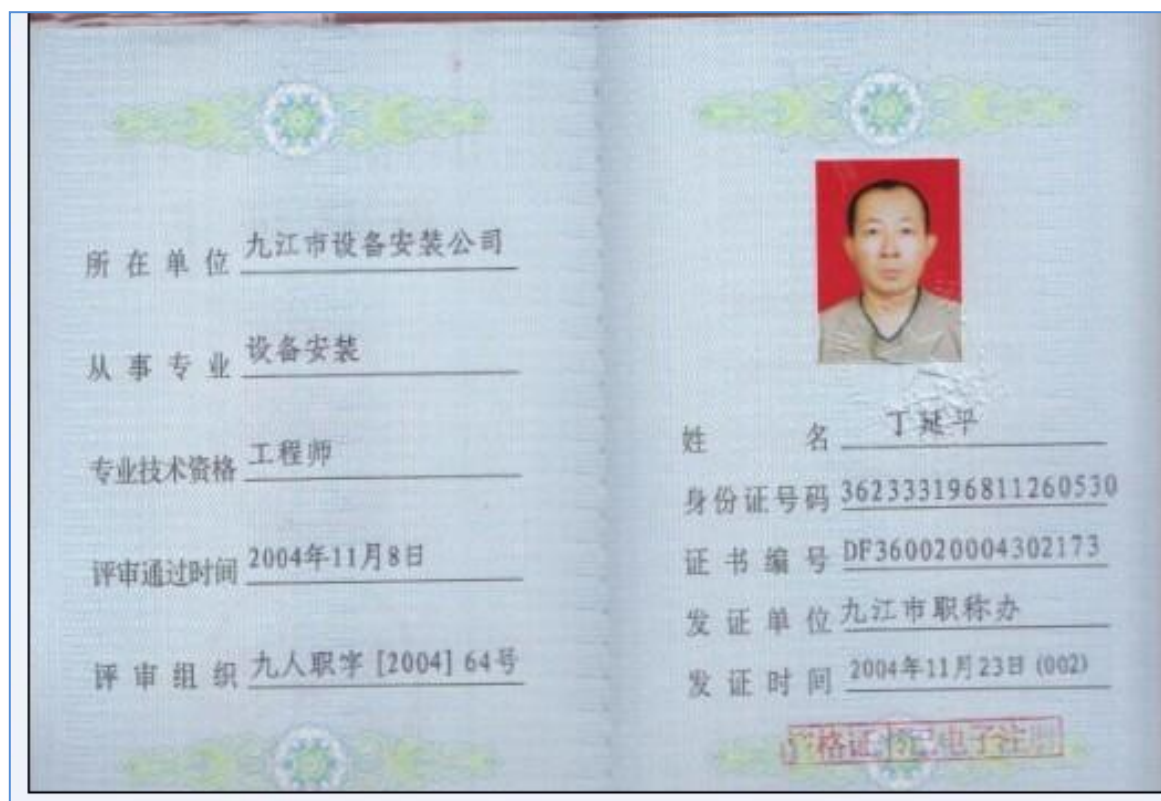 所在单位 九江市设备安装公司
从事专业 设备安装
专业技术资格 工程师
评审通过时间 2004年11月8日
评审组织 九人职字 [2004] 64号
姓名 丁延平
身份证号码 362333196811260530
证书编号 DF360020004302173
发证单位 九江市职称办
发证时间 2004年11月23日 (002)
格证书已电子注册